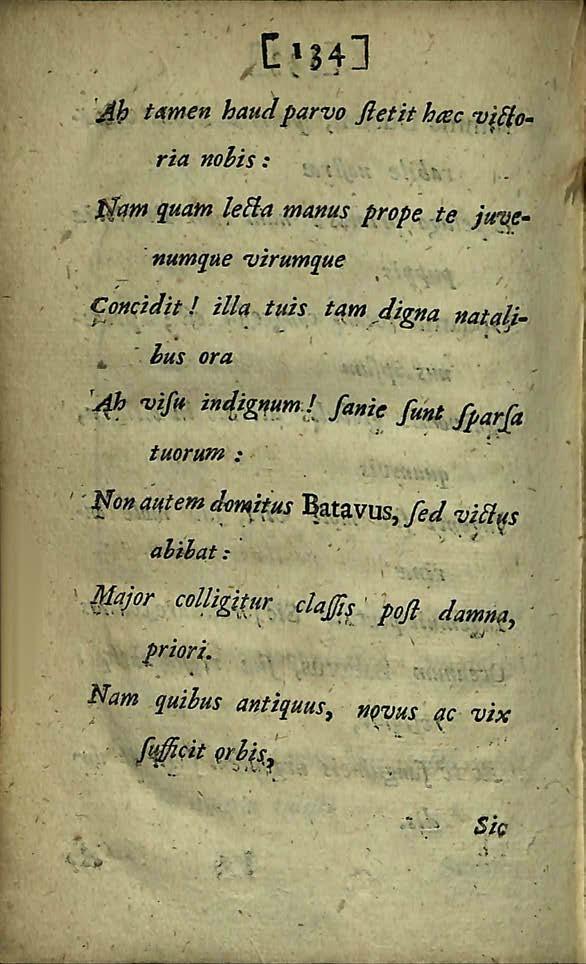 [134]
Ah tamen haud parvo ſtetit hæc victo-
ria nobis :
Nam quam lecta manus prope te juve-
numque virumque
Concidit ! illa tuis tam digna natali-
bus ora
Ah viſu indignum ! ſanie ſunt ſparſa
tuorum :
Non autem domitus Batavus, ſed victus
abibat :
Major colligitur claſſis poſt damna,
priori.
Nam quibus antiquus, novus ac vix
ſufficit orbis,
Sic